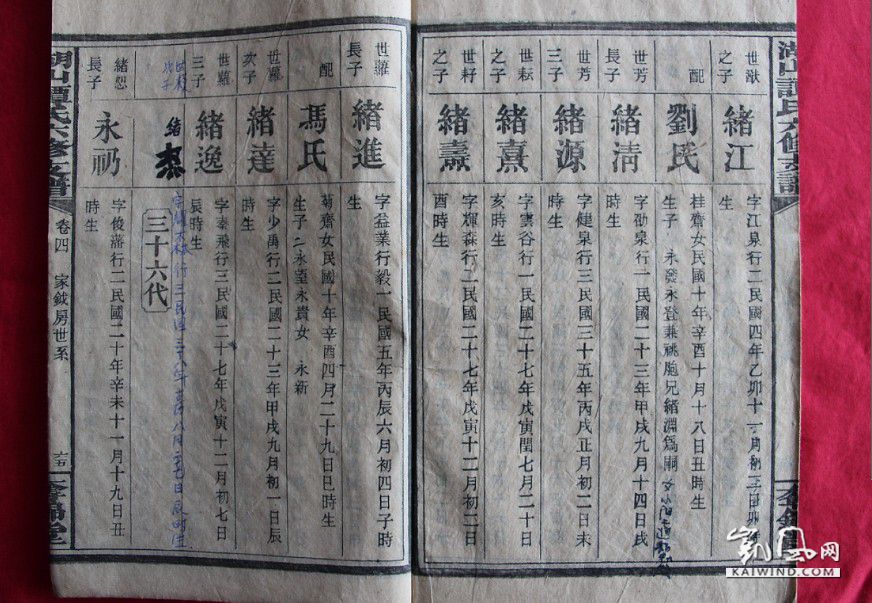 湖山譚氏六修支譜
世猷之子
緒江
字江泉行二民國四年乙卯十一月初
生
配
劉氏
桂齋女民國十年辛酉十月十八日丑時生
生子 永發永登兼祧胞兄緒淵爲嗣
世芳長子
緒清
字劭泉行一民國二十三年甲戌九月十四日戌
時生
世芳三子
緒源
字健泉行三民國三十五年丙戌正月初二日未
時生
世耘之子
緒熹
字雲谷行一民國二十七年戊寅閏七月二十日
亥時生
世籽之子
緒燾
字輝森行二民國二十七年戊寅十二月初二日
酉時生
世蘿長子
緒進
字益業行毅一民國五年丙辰六月初四日子時
生
配
馮氏
菊齋女民國十年辛酉四月二十九日巳時生
生子二永望永貴女 永新
世蘿次子
緒達
字少禹行二民國二十三年甲戌九月初一日辰
時生
世蘿三子
緒逸
字秦飛行三民國二十七年戊寅十二月初七日
辰時生
緒杰
三十六代
緒恕長子
永礽
字俊藩行二民國二十年辛未十一月十九日丑
時生
湖山譚氏六修支譜
卷四 家鉞房世系
六五
凱風网
KAIWIND.COM